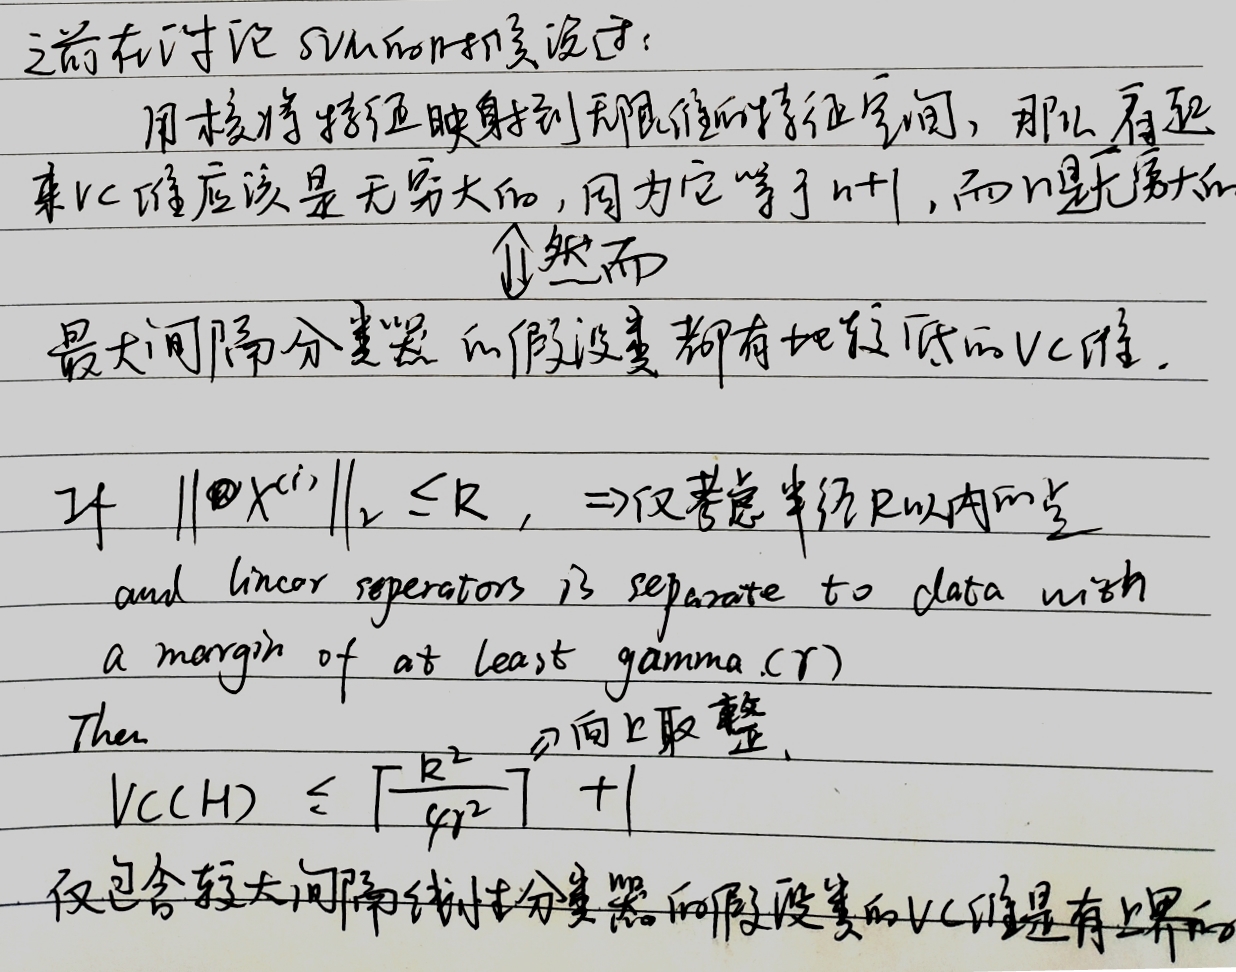 之前在讨论SVM的时候说过:
用核将特征映射到无限维的特征空间,那么看起
来VC维应该是无穷大的,因为它等于n+1,而n是无穷大的
⇕然而
最大间隔分类器的假设类都有比较低的VC维.
If ||X^(i)||₂ ≤R, ⇒仅考虑半径R以内的点
and linear seperators is separate to data with
a margin of at least gamma.(γ)
Then ⇗向上取整.
VC(H) ≤ ⌈R²/4γ²⌉ +1
仅包含较大间隔线性分类器的假设类的VC维是有上界的